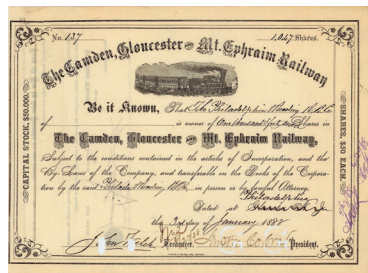 No. 137
1,047 Shares.
The Camden, Gloucester and Mt. Ephraim Railway
Be it Known, That The Philadelphia & Reading R.R.Co
of is owner of One thousand & forty seven Shares in
The Camden, Gloucester and Mt. Ephraim Railway,
Subject to the conditions contained in the articles of Incorporation, and the
By-Laws of the Company, and transferable on the Books of the Corpora-
tion by the said in person or by lawful Attorney.
Philadelphia
Dated at
this 3rd day of January 1888
Treasurer. President.
CAPITAL STOCK, $50,000.
SHARES, $50 EACH.